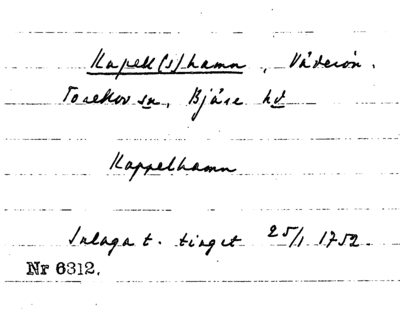 Kapell(s)hamn, Väderön.
Torekov sn, Bjäre hd
Kappelhamn
Inlaga t. tinget 25/1 1752.
Nr 6312.